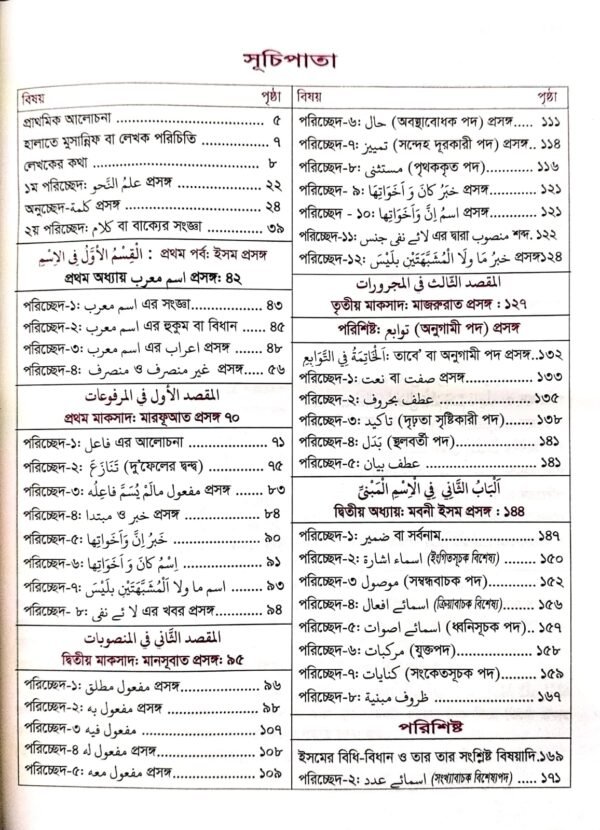 সূচিপাতা
বিষয় পৃষ্ঠা
প্রাথমিক আলোচনা ............ ৫
হালাতে মুসান্নিফ বা লেখক পরিচিতি ............ ৭
লেখকের কথা ............ ৮
১ম পরিচ্ছেদ: علمُ النَّحو প্রসঙ্গ ............ ২২
অনুচ্ছেদ-كلمة প্রসঙ্গ ............ ২৪
২য় পরিচ্ছেদ: كلام বা বাক্যের সংজ্ঞা ............ ৩৯
প্রথম পর্ব: ইসম প্রসঙ্গ : اَلْقِسْمُ الْأَوَّلُ فِي الْاِسْمِ
প্রথম অধ্যায় اسم معرب প্রসঙ্গ: ৪২
পরিচ্ছেদ-১: اسم معرب এর সংজ্ঞা ............ ৪৩
পরিচ্ছেদ-২: اسم معرب এর হুকুম বা বিধান .... ৪৫
পরিচ্ছেদ-৩: اعراب اسم معرب প্রসঙ্গ ............ ৪৮
পরিচ্ছেদ-৪: منصرف ও غير منصرف প্রসঙ্গ ...... ৫৬
المقصد الأول فى المرفوعات
প্রথম মাকসাদ: মারফূআত প্রসঙ্গ ৭০
পরিচ্ছেদ-১: فاعل এর আলোচনা ............ ৭১
পরিচ্ছেদ-২: تَنَازَعَ (দু'ফেলের দ্বন্দ্ব) ............ ৭৫
পরিচ্ছেদ-৩: مفعول مالَمْ يُسَمَّ فَاعِلُه প্রসঙ্গ ........ ৮৩
পরিচ্ছেদ-৪: مبتدا ও خبر প্রসঙ্গ ............ ৮৪
পরিচ্ছেদ-৫: خَبَرُ اِنَّ وَاَخَوَاتِها ............ ৯০
পরিচ্ছেদ-৬: اِسْمُ كَانَ وَ اَخَوَاتِها ............ ৯১
পরিচ্ছেদ-৭: اسم ما ولا اَلْمُشَبَّهَتَيْنِ بِلَيْسَ ........ ৯৩
পরিচ্ছেদ- ৮: لا ئے نفى এর খবর প্রসঙ্গ ............ ৯৪
المقصد الثَّانى فى المنصوبات
দ্বিতীয় মাকসাদ: মানসূবাত প্রসঙ্গ: ৯৫
পরিচ্ছেদ-১: مفعول مطلق প্রসঙ্গ ............ ৯৬
পরিচ্ছেদ-২: مفعول به প্রসঙ্গ ............ ৯৮
পরিচ্ছেদ-৩ مفعول فيه ............ ১০৭
পরিচ্ছেদ-৪ مفعول له প্রসঙ্গ ............ ১০৮
পরিচ্ছেদ-৫: مفعول معه প্রসঙ্গ ............ ১০৯
বিষয় পৃষ্ঠা
পরিচ্ছেদ-৬: حال (অবস্থাবোধক পদ) প্রসঙ্গ..... ১১১
পরিচ্ছেদ-৭: تمييز (সন্দেহ দূরকারী পদ) প্রসঙ্গ.. ১১৪
পরিচ্ছেদ-৮: مستثنى (পৃথককৃত পদ)............ ১১৬
পরিচ্ছেদ- ৯: خَبَرُ كَانَ وَ اَخَوَاتِهَا প্রসঙ্গ............ ১২১
পরিচ্ছেদ - ১০: اسمُ اِنَّ وَ اَخَوَاتِهَا প্রসঙ্গ............ ১২১
পরিচ্ছেদ-১১: منصوب এর দ্বারা لائے نفى جنس শব্দ. ১২২
পরিচ্ছেদ-১২: خبرُ مَا ولَا الْمُشَبَّهَتَيْنِ بِلَيْسَ প্রসঙ্গ১২৪
المقصد الثالث فى المجرورات
তৃতীয় মাকসাদ: মাজরুরাত প্রসঙ্গ : ১২৭
পরিশিষ্ট: توابع (অনুগামী পদ) প্রসঙ্গ
اَلْخَاتِمَةُ فِي التَّوَابِعِ: তাবে' বা অনুগামী পদ প্রসঙ্গ...১৩২
পরিচ্ছেদ-১: نعت বা صفت প্রসঙ্গ............ ১৩৩
পরিচ্ছেদ-২: عطف بحروف ............ ১৩৫
পরিচ্ছেদ-৩: تاكيد (দৃঢ়তা সৃষ্টিকারী পদ)........ ১৩৮
পরিচ্ছেদ-৪: بَدَل (স্থলবর্তী পদ)............ ১৪১
পরিচ্ছেদ-৫: عطف بيان ............ ১৪১
اَلْبَابُ الثَّانِي فِي الْاِسْمِ الْمَبْنِيِّ
দ্বিতীয় অধ্যায়: মবনী ইসম প্রসঙ্গ : ১৪৪
পরিচ্ছেদ-১: ضمير বা সর্বনাম............ ১৪৭
পরিচ্ছেদ-২: اسماء اشارة (ইংগিতসূচক বিশেষ্য) .... ১৫০
পরিচ্ছেদ-৩ موصول (সম্বন্ধবাচক পদ) ........ ১৫২
পরিচ্ছেদ-৪: اسمائے افعال (ক্রিয়াবাচক বিশেষ্য)....... ১৫৬
পরিচ্ছেদ-৫: اسمائے اصوات (ধ্বনিসূচক পদ).. ১৫৭
পরিচ্ছেদ-৬: مركبات (যুক্তপদ) ............ ১৫৮
পরিচ্ছেদ-৭: كنايات (সংকেতসূচক পদ)........ ১৫৯
পরিচ্ছেদ-৮: ظروف مبنية ............ ১৬৭
পরিশিষ্ট
ইসমের বিধি-বিধান ও তার তার সংশ্লিষ্ট বিষয়াদি.১৬৯
পরিচ্ছেদ-২: اسمائے عدد (সংখ্যাবাচক বিশেষ্যপদ) ..... ১৭১